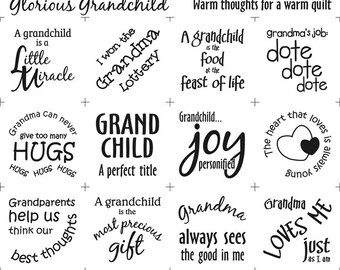 Glorious Grandchild Warm thoughts for a warm quilt
A grandchild
is a
Little
Miracle
I won the
Grandma
Lottery
A grandchild
is the
food
at the
feast of life
grandma's job:
dote
dote
dote
Grandma can never
give too many
HUGS
HUGS HUGS HUGS
GRAND
CHILD
A perfect title
Grandchild...
joy
personified
The heart that loves is
always young
Grandparents
help us
think our
best thoughts
A grandchild
is the
most precious
gift
Grandma
always sees
the good in me
Grandma
LOVES ME
just
as I am